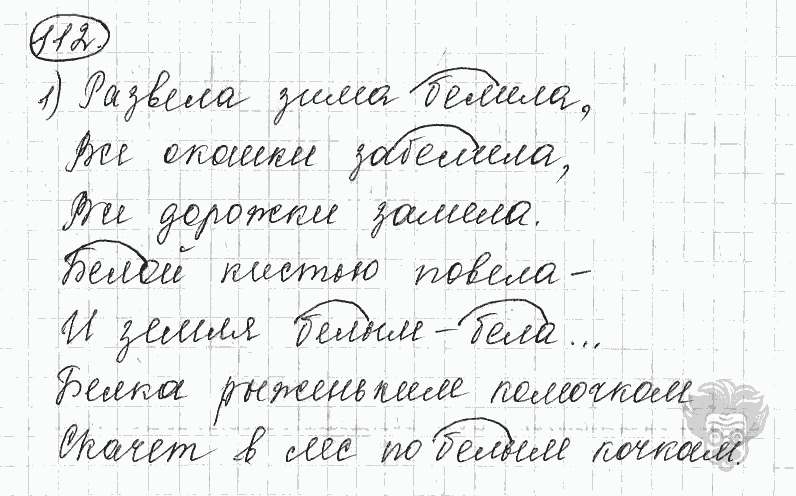 112.
1) Развела зима белила,
Все окошки забелила,
Все дорожки замела.
Белой кистью повела –
И земля белым – бела...
Белка рыженьким комочком
Скачет в лес по белым кочкам.